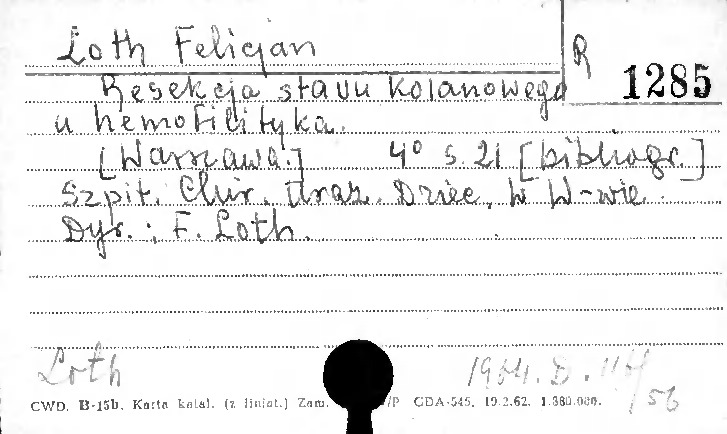 Loth Felicjan
R 1285
Resekcja stawu kolanowego
u hemofilityka.
[Warszawa.] 4° s. 21 [bibliogr.]
Szpit. Chir. Uraz. Dziec. w W-wie.
Dyr.: F. Loth.
Loth 1964. D. 114/56
CWD. B-15b. Karta katal. (z liniat.) Zam. /P GDA-545. 19.2.62. 1.380.000.